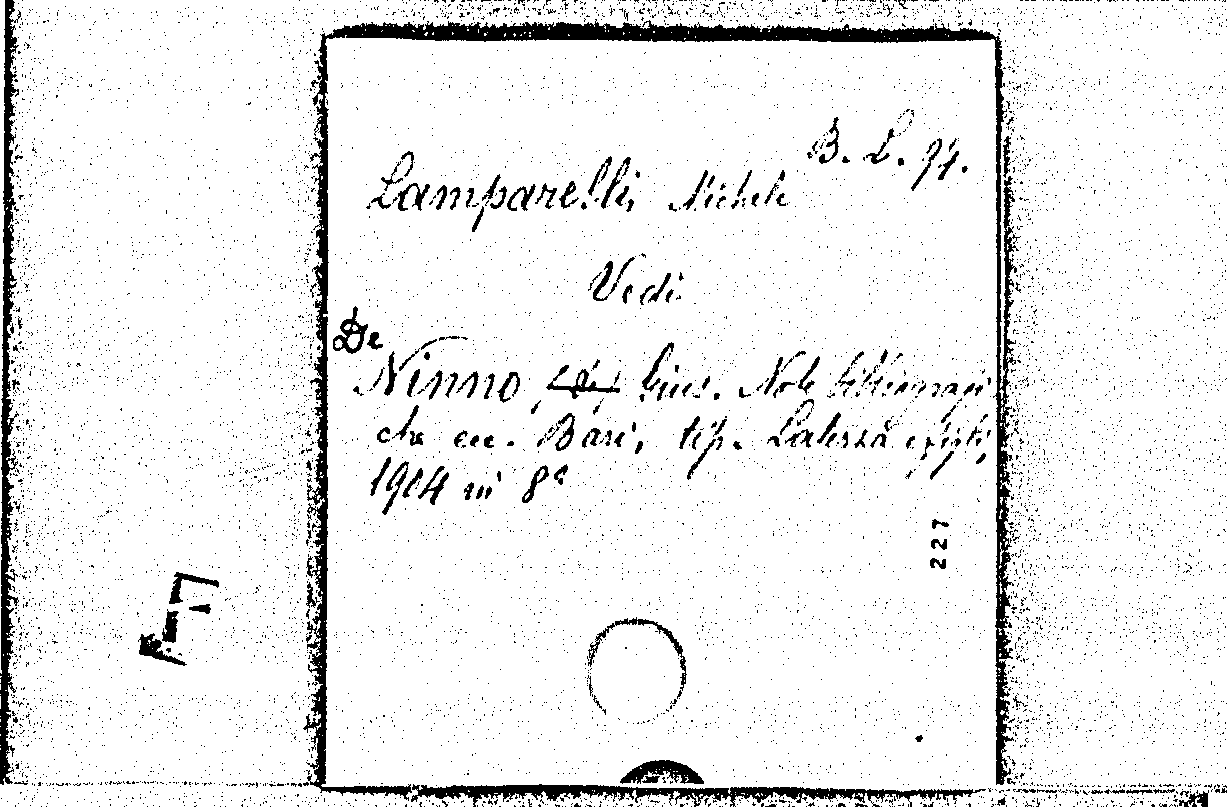 B. L. 94.
Lamparelli, Michele
Vedi
De
Ninno, (de) Gius. Note bibliografi
che ecc. Bari, tip. Laterza e figli,
1904 in 8°
227
F